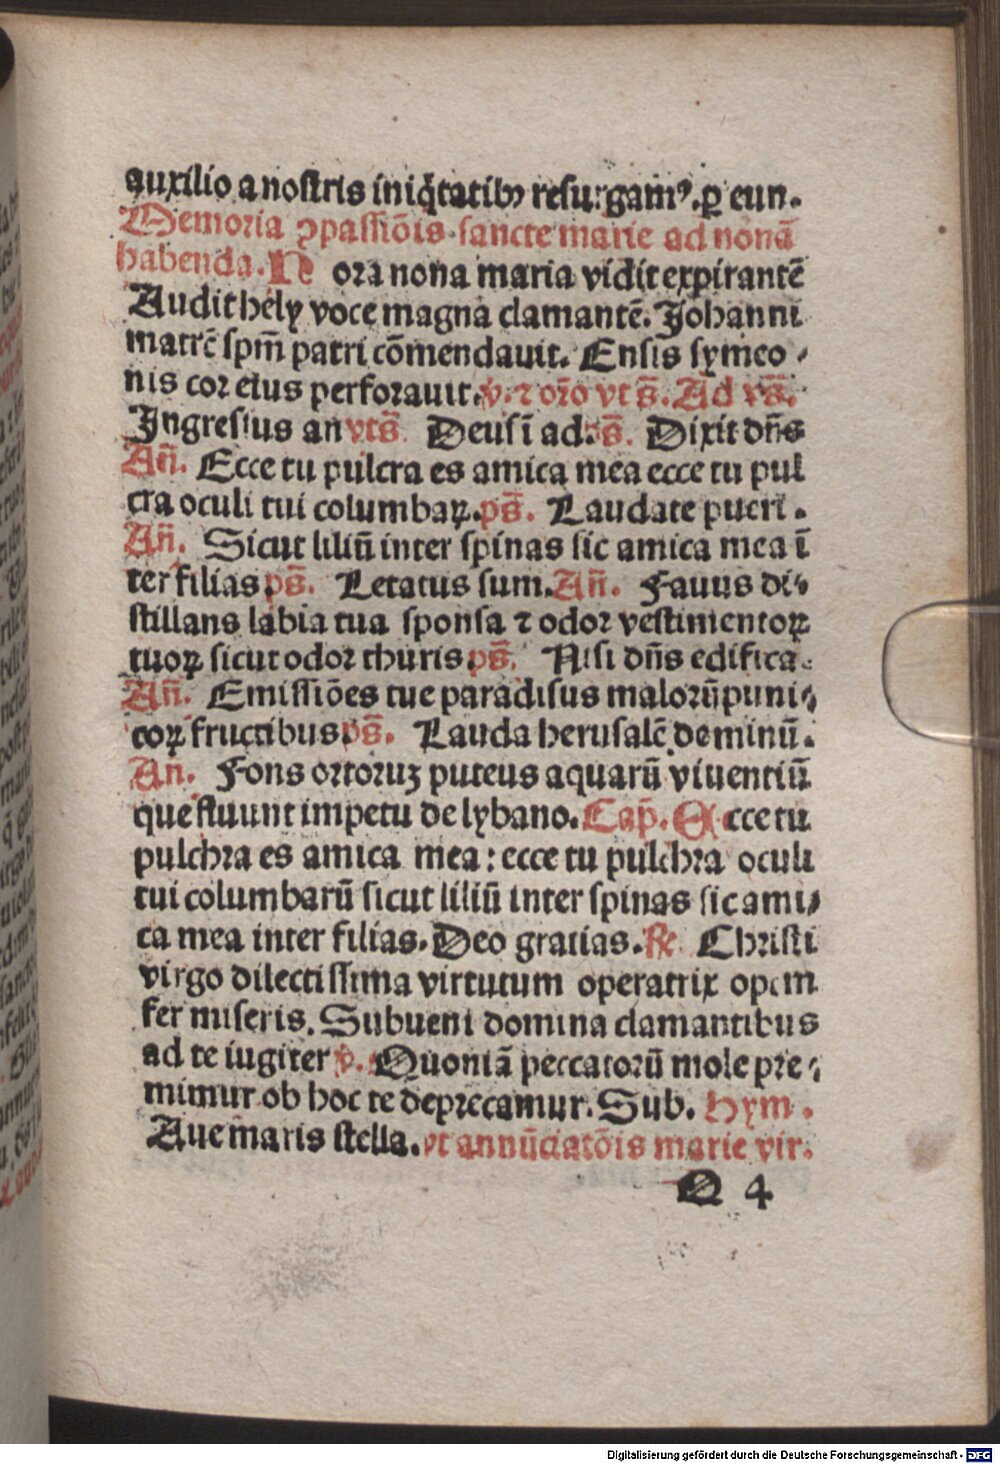 auxilio a nostris iniq̃tatibꝰ resurgamꝰ. ꝑ eun.
Memoria ꝯpassiõis sancte marie ad nonã
habenda. H ora nona maria vidit expirantẽ
Audit hely voce magna clamantẽ. Johanni
matrẽ spm̃ patri cõmendauit. Ensis symeo⸗
nis cor eius perforauit. v̉. ⁊ oro vt s̃. Ad vs̃.
Ingressus an vts̃ Deus ĩ ad. ps̃. Dixit dñs
Añ. Ecce tu pulcra es amica mea ecce tu pul
cra oculi tui columbaꝝ. ps̃. Laudate pueri.
Añ. Sicut liliũ inter spinas sic amica mea ĩ
ter filias ps̃. Letatus sum. Añ. Fauus di⸗
stillans labia tua sponsa ⁊ odor vestimentoꝝ
tuoꝝ sicut odor thuris. ps̃. Nisi dñs edifica.
Añ. Emissiões tue paradisus malorũ puni⸗
coꝝ fructibus. ps̃. Lauda herusalẽ dominũ.
An. Fons ortoruꝫ puteus aquarũ viuentiũ
que fluunt impetu de lybano. Cap̃. E cce tu
pulchra es amica mea: ecce tu pulchra oculi
tui columbarũ sicut liliũ inter spinas sic ami⸗
ca mea inter filias. Deo gratias. ℟ Christi
virgo dilectissima virtutum operatrix opem
fer miseris. Subueni domina clamantibus
ad te iugiter v̉. Quoniã peccatorũ mole pre⸗
mimur ob hoc te deprecamur. Sub. Hym.
Aue maris stella. vt annũciatõis marie vir.
Q 4
Digitalisierung gefördert durch die Deutsche Forschungsgemeinschaft - DFG